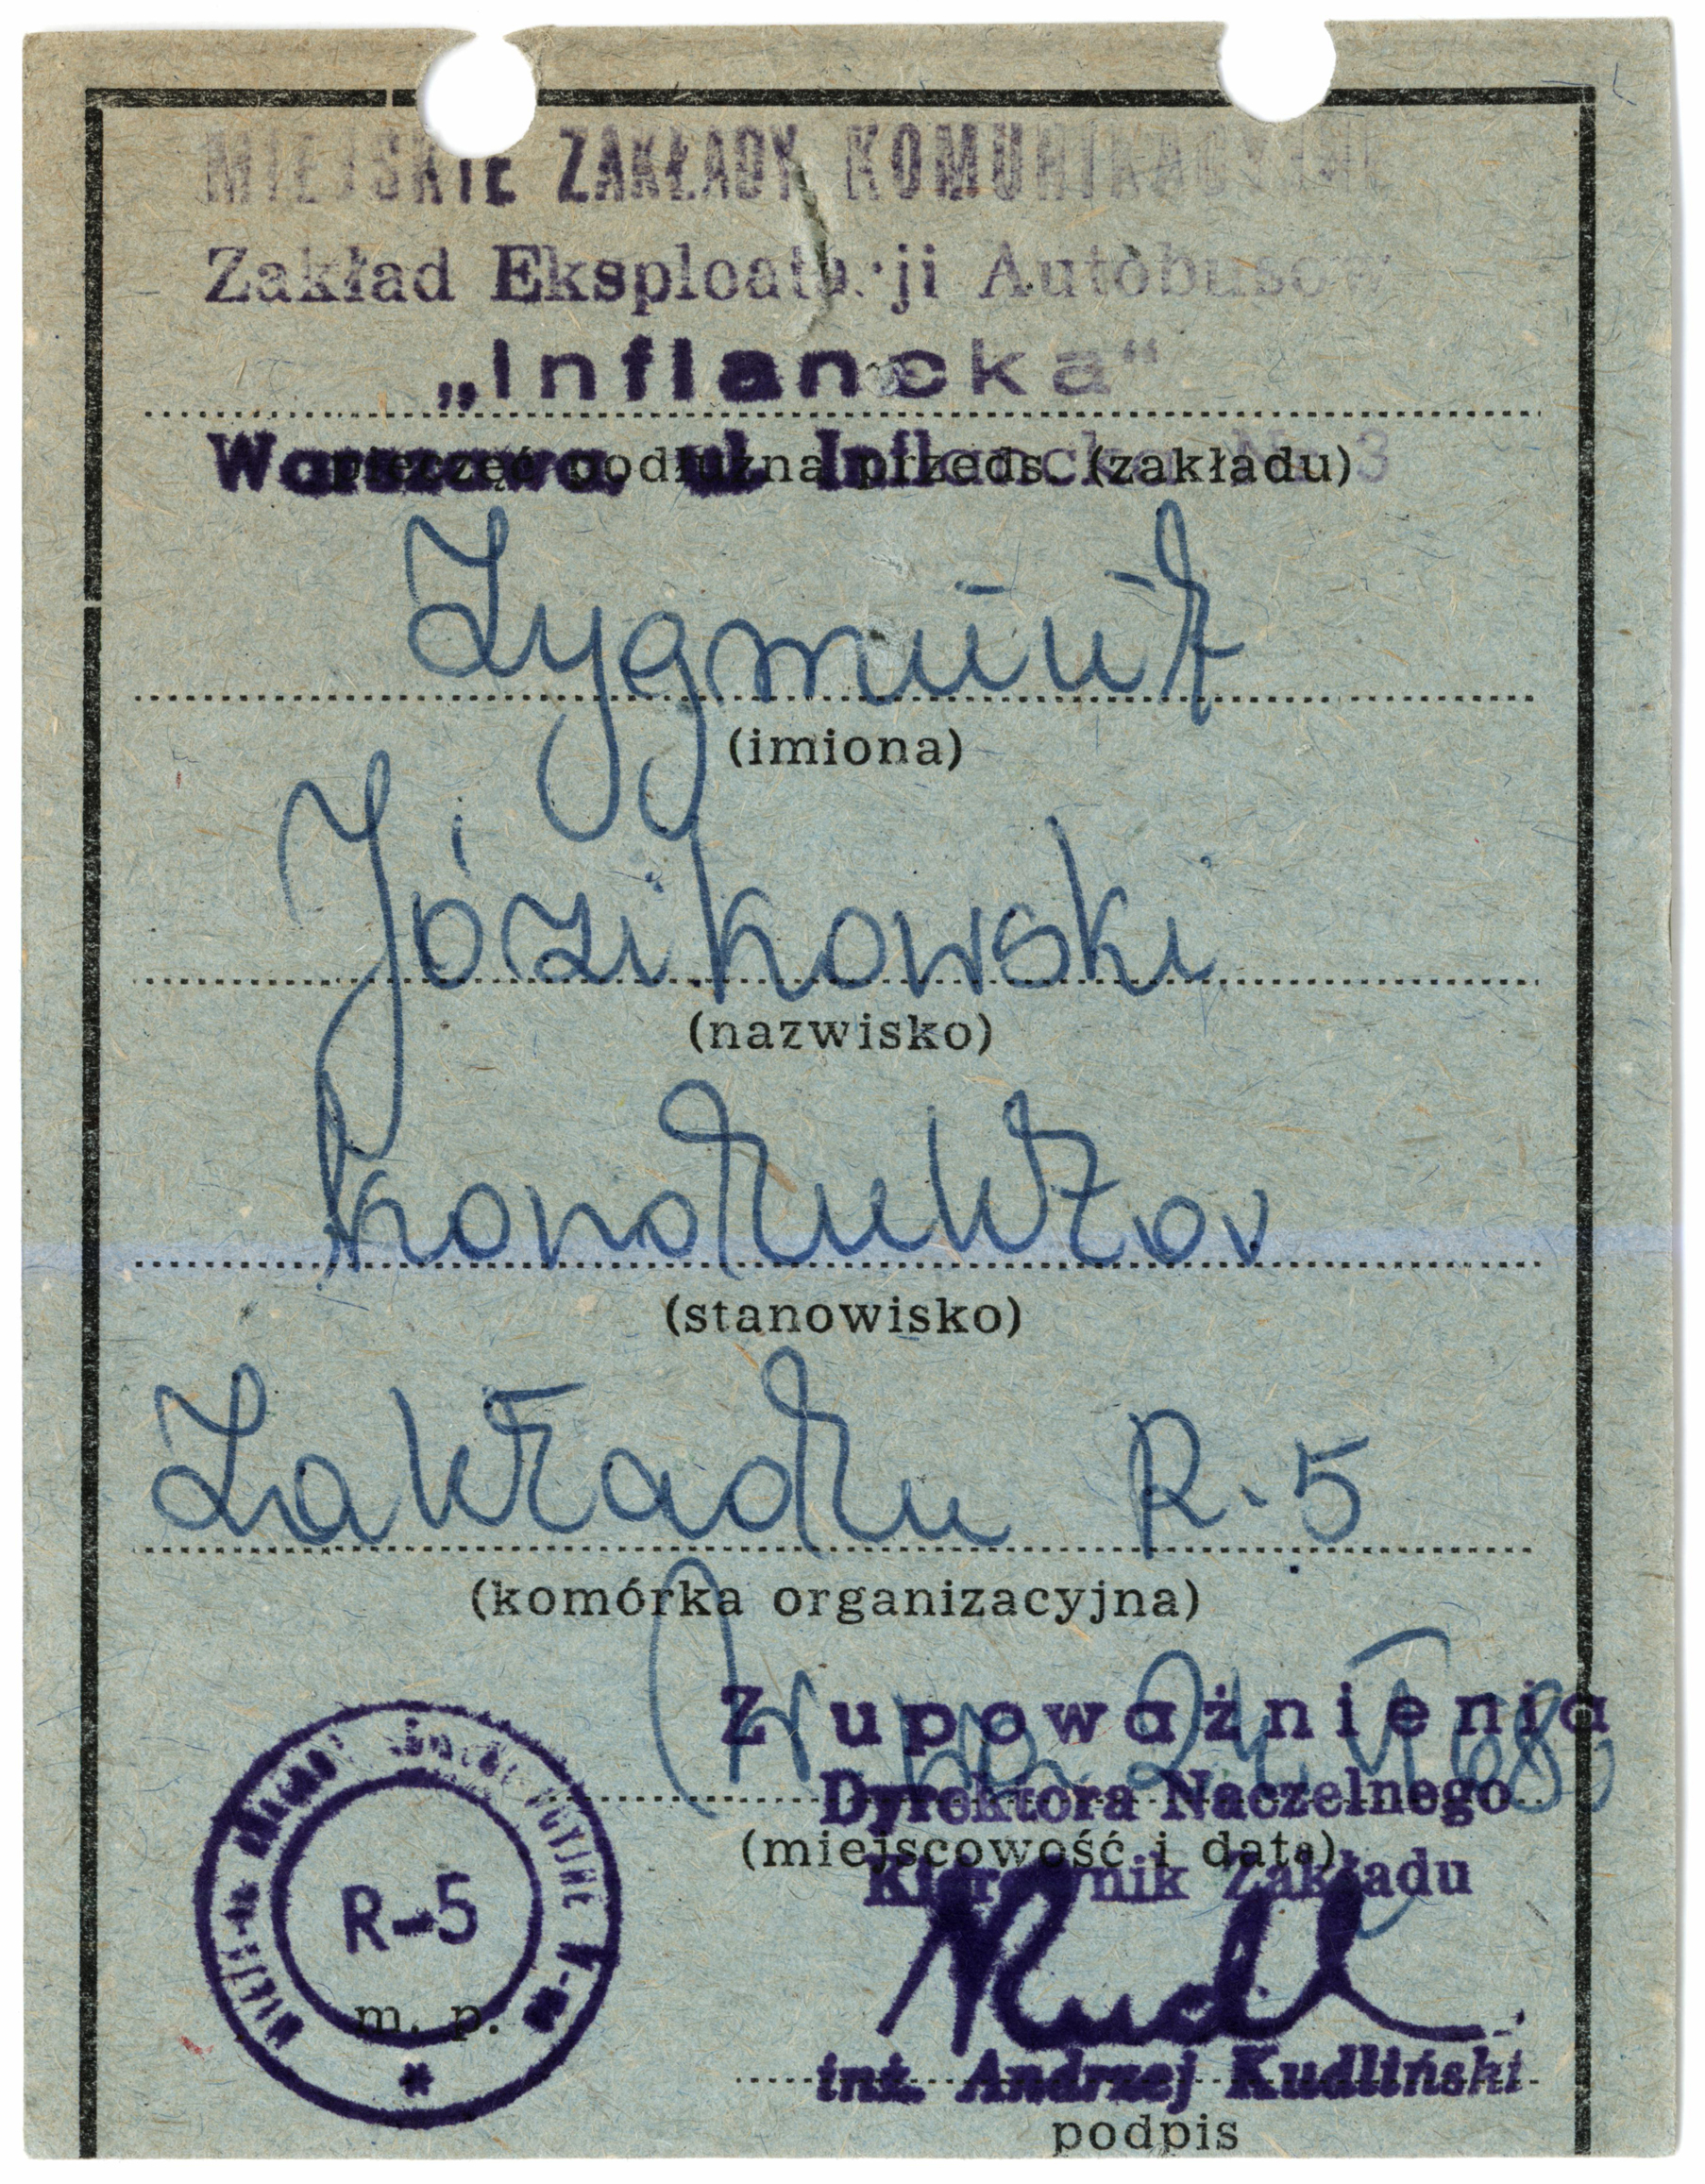 MIEJSKIE ZAKŁADY KOMUNIKACYJNE
Zakład Eksploatacji Autobusów
„Inflancka“
Warszawa, ul. Inflancka Nr 3
pieczęć podłużna przeds. (zakładu)
Zygmunt
(imiona)
Józikowski
(nazwisko)
konduktor
(stanowisko)
Zakładu R-5
(komórka organizacyjna)
Z upoważnienia
W-wa 24 VI 68
Dyrektora Naczelnego
(miejscowość i data)
Kierownik Zakładu
R-5
m. p.
inż. Andrzej Kudliński
podpis